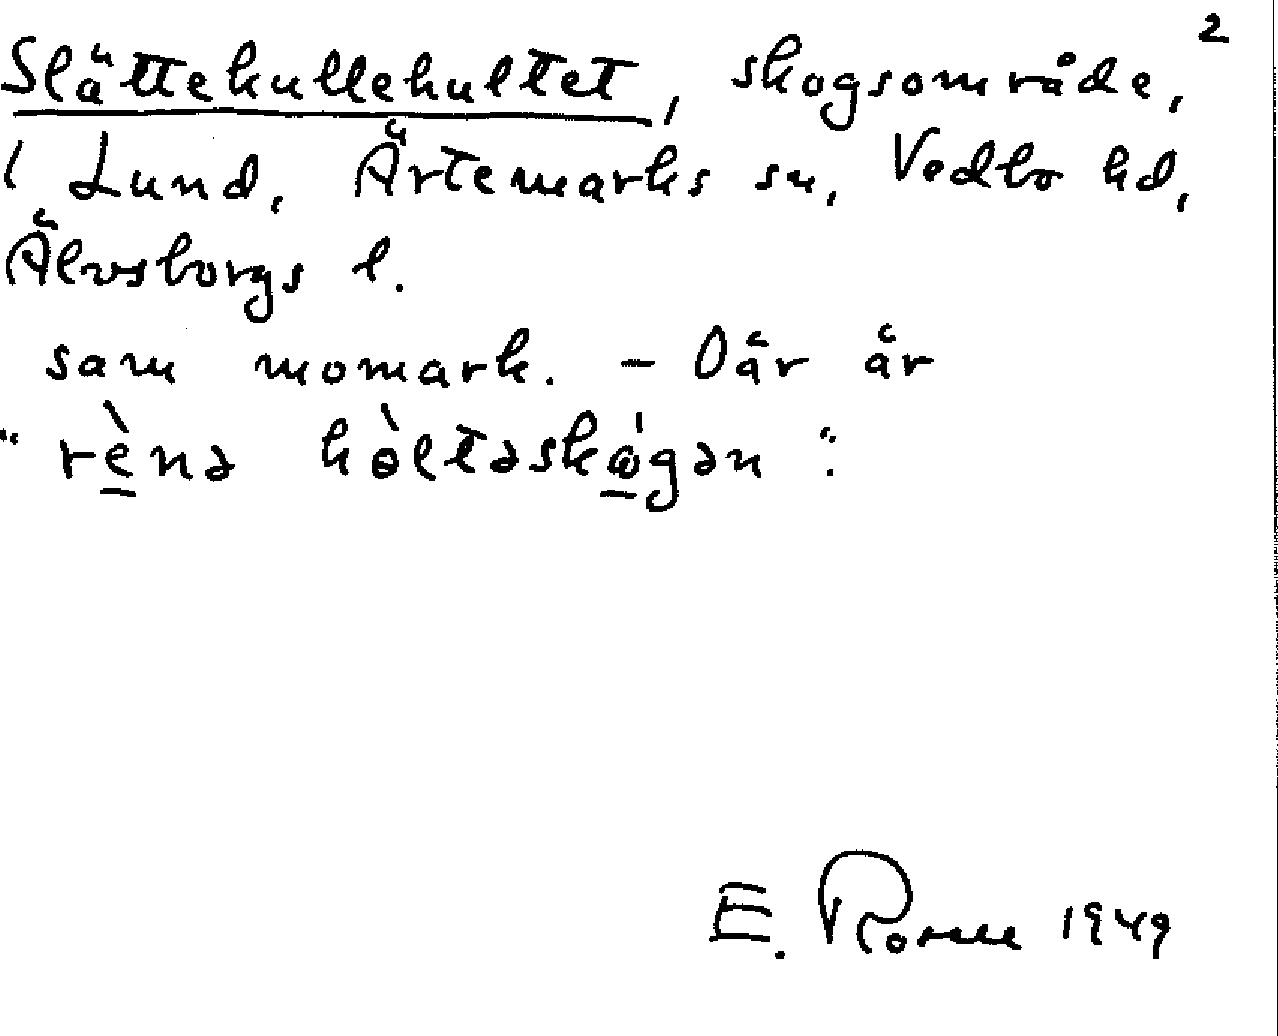 2
Slättekullekultet, skogsområde,
i Lund, Ärtemarks sn, Vedbo hd,
Älvsborgs l.
som momark. – Där är
"rè̱nə hòltəskò̱gən".
E. 1949